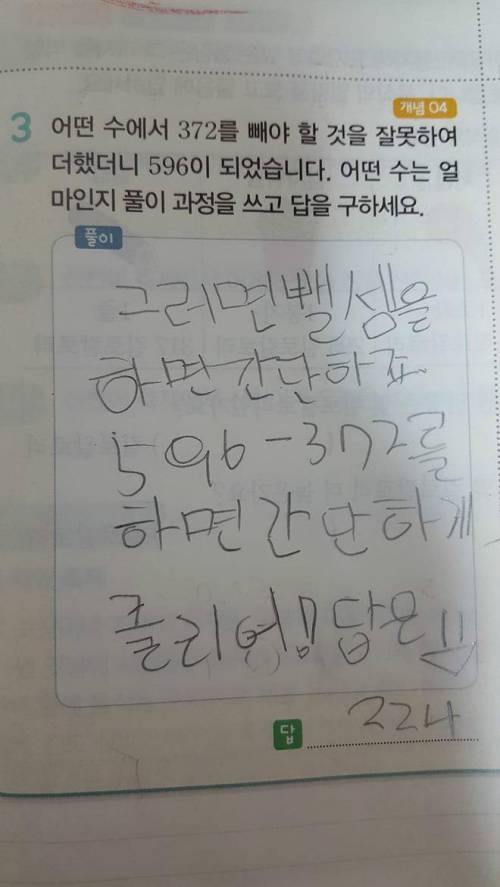 개념 04
3 어떤 수에서 372를 빼야 할 것을 잘못하여
더했더니 596이 되었습니다. 어떤 수는 얼
마인지 풀이 과정을 쓰고 답을 구하세요.
풀이
그러면 뺄셈을
하면 간단하죠
596-372를
하면 간단하게
풀리어!! 답은
답 224